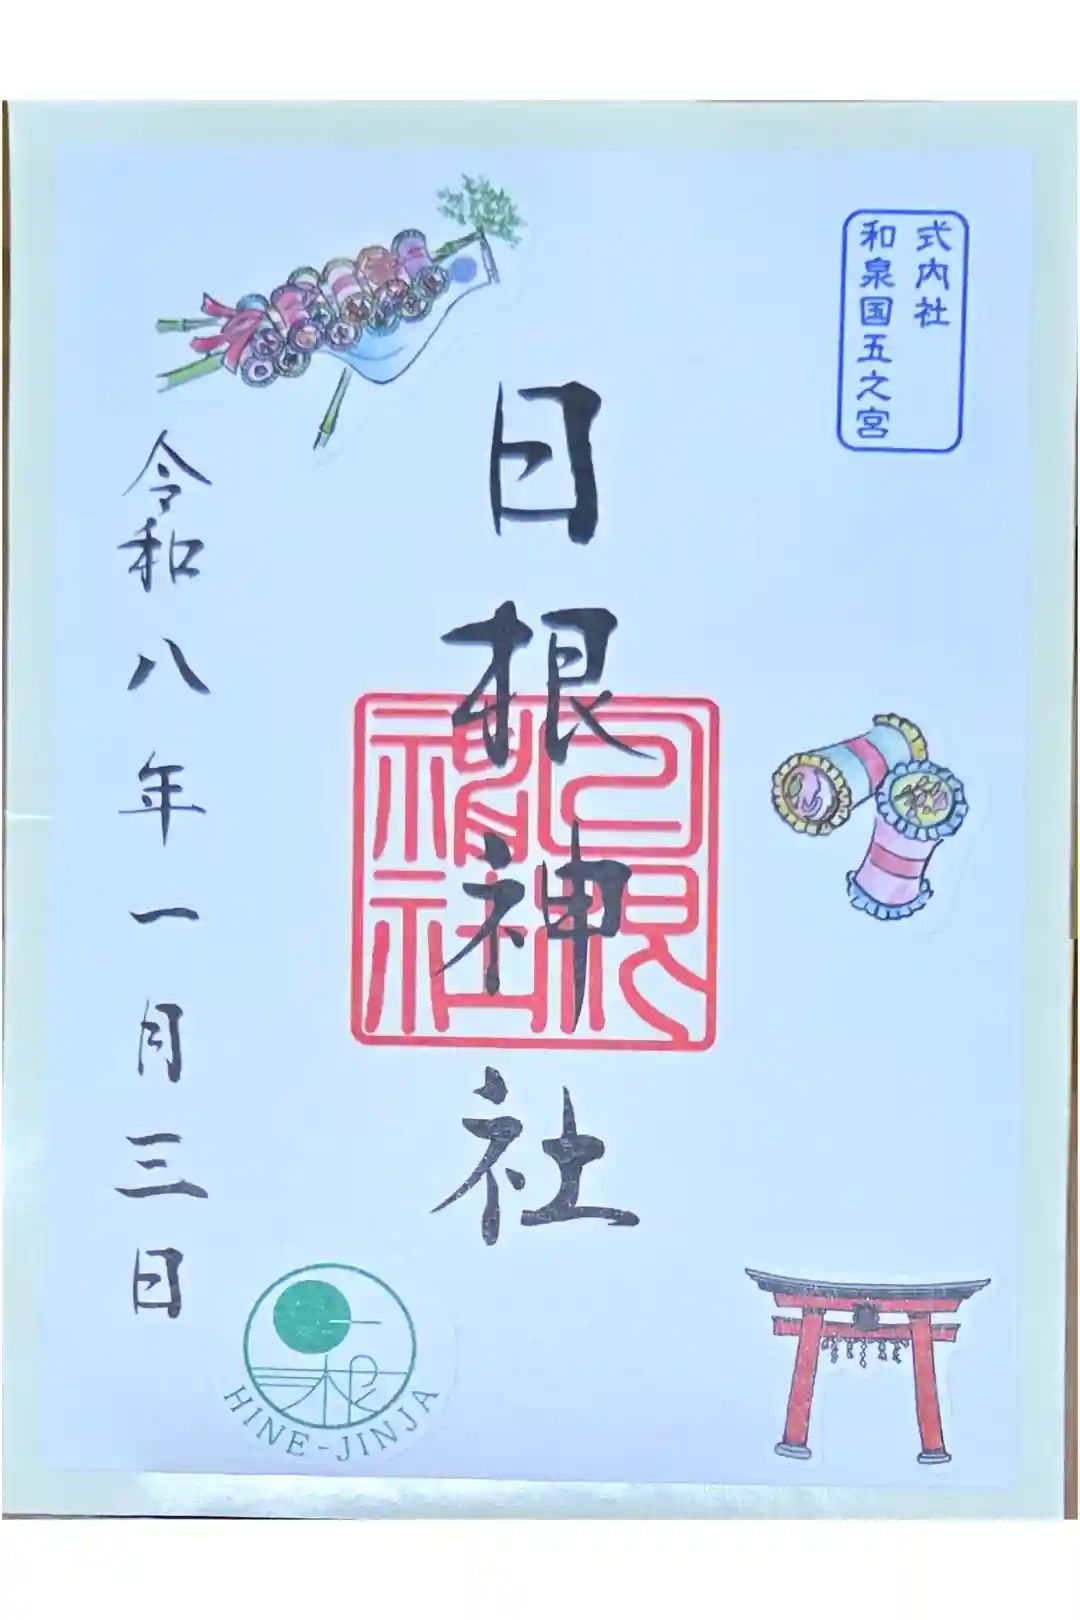 式内社
和泉国五之宮
日根神社
日根神社
令和八年一月三日
HINE-JINJA